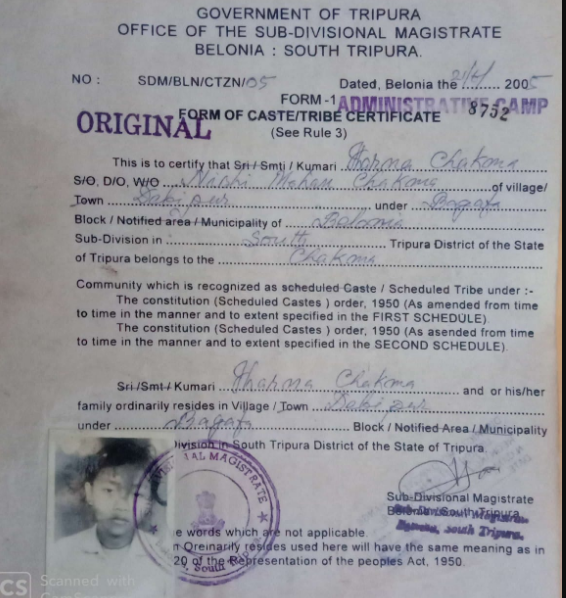 GOVERNMENT OF TRIPURA
OFFICE OF THE SUB-DIVISIONAL MAGISTRATE
BELONIA : SOUTH TRIPURA.
NO : SDM/BLN/CTZN/05 Dated, Belonia the ......... 2005
FORM -1 ADMINISTRATIVE CAMP
ORIGINAL FORM OF CASTE/TRIBE CERTIFICATE 8752
(See Rule 3)
This is to certify that Sri / Smti / Kumari Chakma
S/O, D/O, W/O ... Mohan Chakma of village/
Town ... under Bagafa
Block / Notified area / Municipality of Belonia
Sub-Division in : South Tripura District of the State
of Tripura belongs to the Chakma
Community which is recognized as scheduled Caste / Scheduled Tribe under :-
The constitution (Scheduled Castes ) order, 1950 (As amended from time
to time in the manner and to extent specified in the FIRST SCHEDULE).
The constitution (Scheduled Castes ) order, 1950 (As asended from time
to time in the manner and to extent specified in the SECOND SCHEDULE).
Sri /Smt / Kumari Chakma and or his/her
family ordinarily resides in Village / Town
under Bagafa Block / Notified Area / Municipality
Division in South Tripura District of the State of Tripura.
MAGISTRATE
Sub-Divisional Magistrate
Belonia, South Tripura
Sub-Divisional Magistrate
Belonia, South Tripura.
e words which are not applicable.
n Oreinarify resides used here will have the same meaning as in
20 of the Representation of the peoples Act, 1950.
South
CS Scanned with